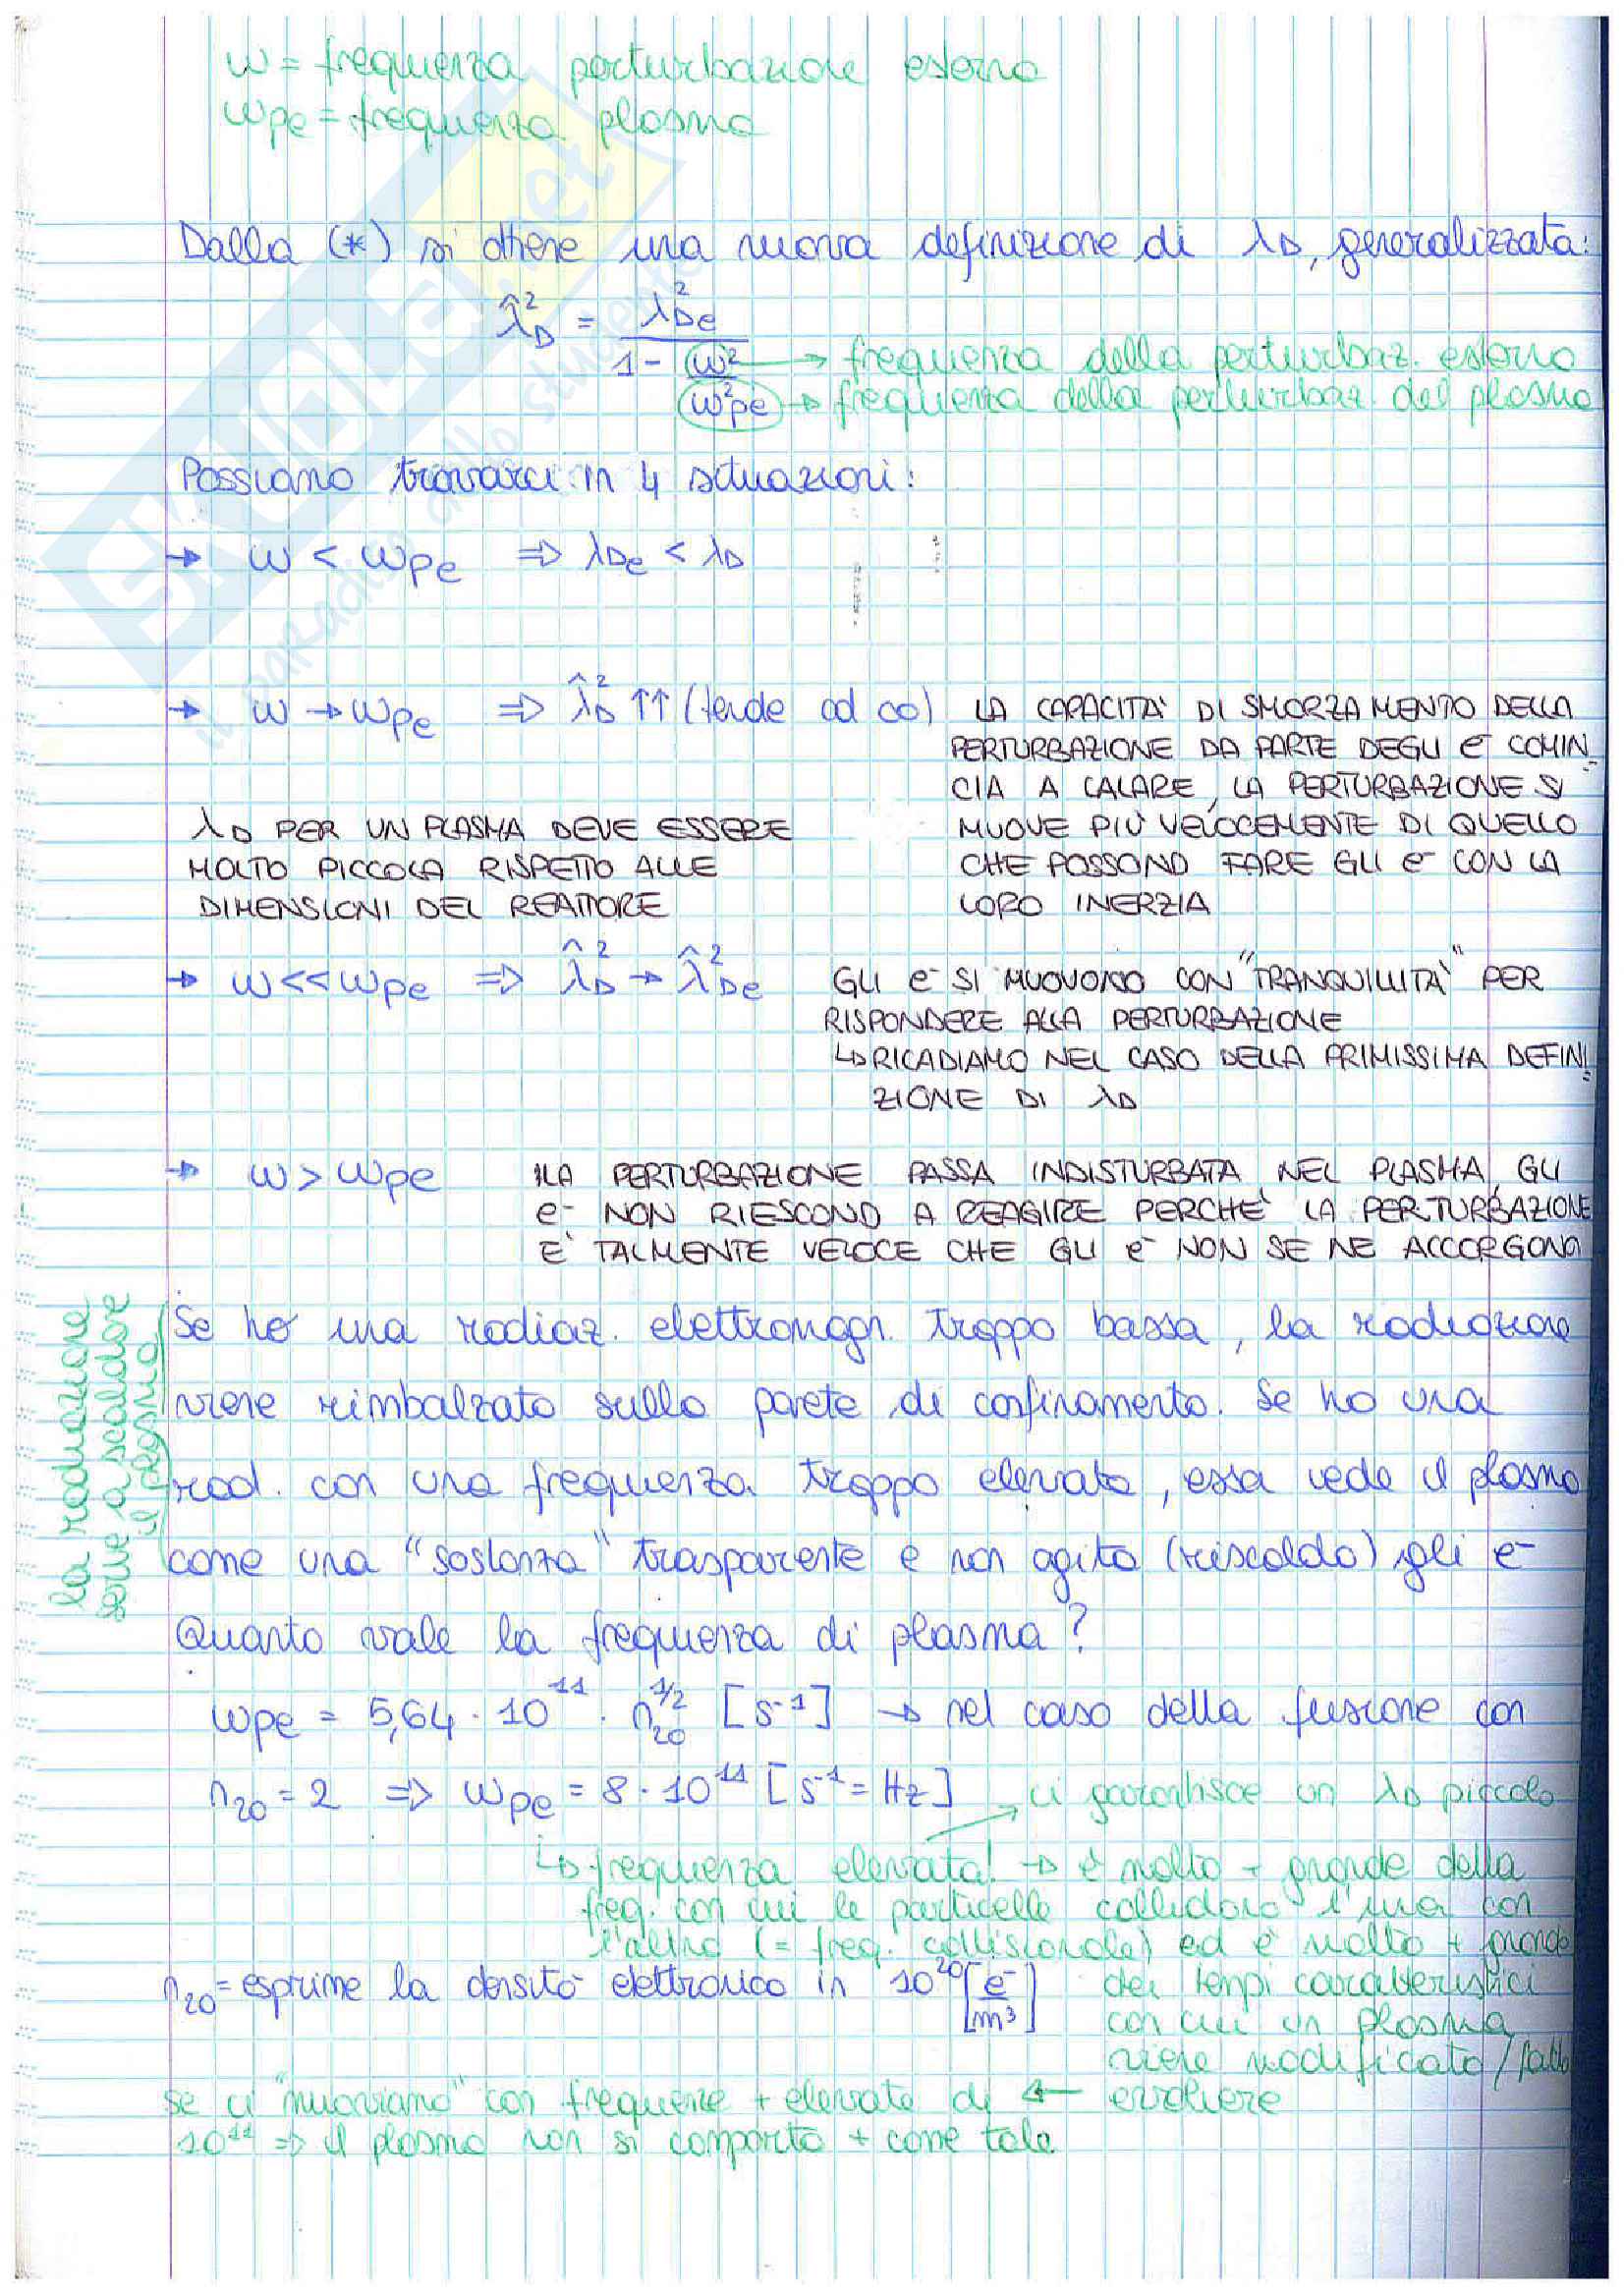 ω = frequenza perturbazione esterna
ωpe = frequenza plasma
Dalla (*) si ottiene una nuova definizione di λD, generalizzata:
λ̂²D = λ²De / (1 - ω²/ω²pe)
ω² → frequenza della perturbaz. esterna
ω²pe → frequenza della perturbaz del plasma
Possiamo trovarci in 4 situazioni:
→ ω < ωpe ⇒ λDe < λD
→ ω → ωpe ⇒ λ̂²D ↑↑ (tende ad ∞)
LA CAPACITÀ DI SMORZAMENTO DELLA
PERTURBAZIONE DA PARTE DEGLI e⁻ COMIN_
CIA A CALARE, LA PERTURBAZIONE SI
MUOVE PIÙ VELOCEMENTE DI QUELLO
CHE POSSONO FARE GLI e⁻ CON LA
LORO INERZIA
λD PER UN PLASMA DEVE ESSERE
MOLTO PICCOLA RISPETTO ALLE
DIMENSIONI DEL REATTORE
→ ω << ωpe ⇒ λ̂²D → λ̂²De
GLI e⁻ SI MUOVONO CON "TRANQUILLITÀ" PER
RISPONDERE ALLA PERTURBAZIONE
↳ RICADIAMO NEL CASO DELLA PRIMISSIMA DEFINI_
ZIONE DI λD
→ ω > ωpe
LA PERTURBAZIONE PASSA INDISTURBATA NEL PLASMA, GLI
e⁻ NON RIESCONO A REAGIRE PERCHÈ LA PERTURBAZIONE
È TALMENTE VELOCE CHE GLI e⁻ NON SE NE ACCORGONO
la radiazione
serve a scaldare
il plasma
Se ho una radiaz. elettromagn. troppo bassa, la radiazione
viene rimbalzata sulla parete di confinamento. Se ho una
rad. con una frequenza troppo elevata, essa vede il plasma
come una "sostanza" trasparente e non agita (riscalda) gli e⁻
Quanto vale la frequenza di plasma?
ωpe = 5,64 · 10¹¹ · n₂₀^1/2 [s⁻¹] → nel caso della fusione con
n₂₀ = 2 ⇒ ωpe = 8 · 10¹¹ [s⁻¹ = Hz] → ci garantisce un λD piccolo
↳ frequenza elevata! → è molto + grande della
freq. con cui le particelle collidono l'una con
l'altra (= freq. collisionale) ed è molto + grande
dei tempi caratteristici
con cui un plasma
viene modificato/fatto
evolvere
n₂₀ = esprime la densità elettronica in 10²⁰ [e⁻/m³]
se ci "muoviamo" con frequenze + elevate di ←
10¹¹ ⇒ il plasma non si comporta + come tale
SKUOLA.net
il paradiso dello studente